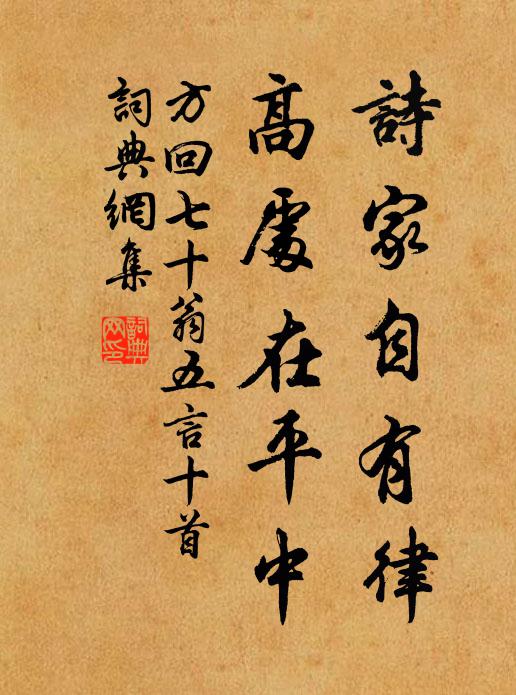 詩家自有律
高處在平中
方回七十翁五言十首
詞典網集
詞典網印